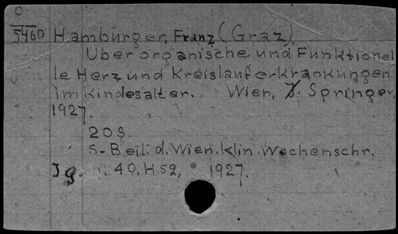 O
5460 Hamburger, Franz (Graz)
Über organische und Funktionel
le Herz und Kreislauferkrankungen
im Kindesalter. Wien, J. Springer,
1927.
20 S.
S.-Beil: d. Wien. klin. Wochenschr.
Jg. 40. H. 52, 1927.